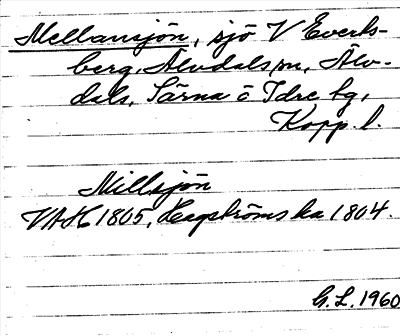 Mellansjön, sjö V Everts-
berg, Älvdals sn, Älv-
dals, Särna o Idre tg,
Kopp. l.
Millsjön
VAH 1805, Hagströms ka 1804.
G. L. 1960